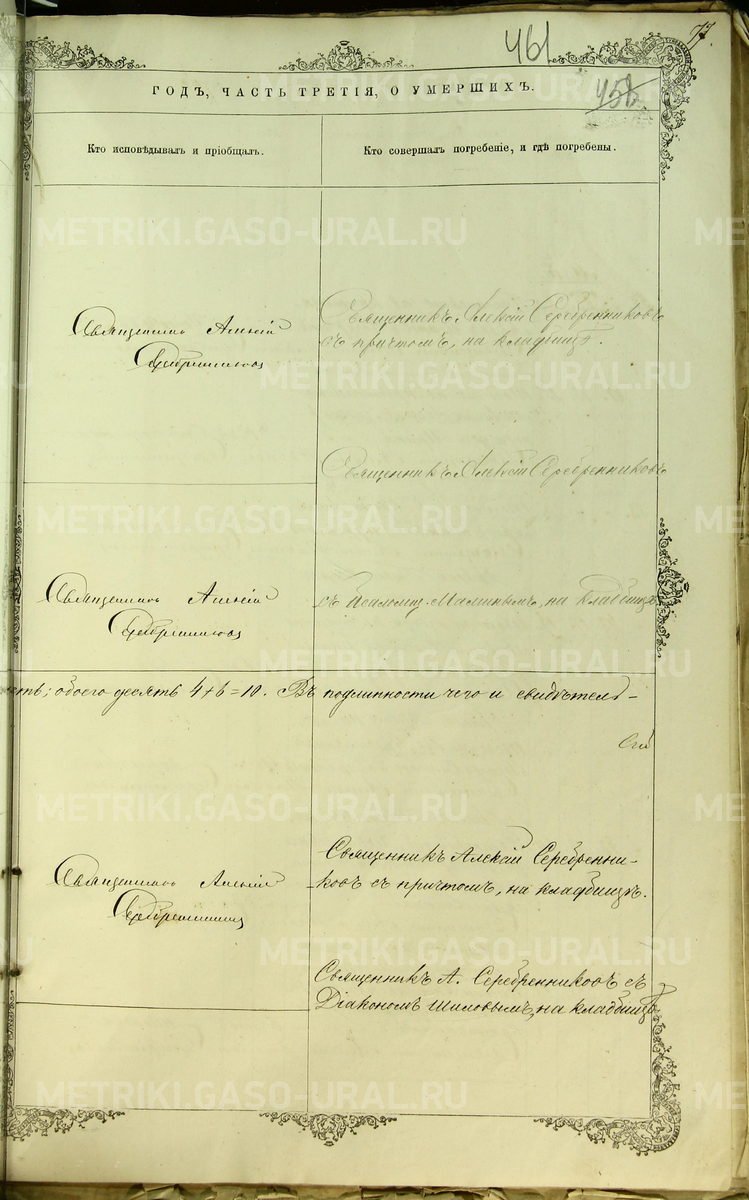 77.
461
458
ГОДЪ, ЧАСТЬ ТРЕТІЯ, О УМЕРШИХЪ.
Кто исповѣдывалъ и пріобщалъ.
Кто совершалъ погребеніе, и гдѣ погребены.
METRIKI.GASO-URAL.RU
Священникъ Алексій
Серебренниковъ
Священникъ Алексій Серебренниковъ
съ причтомъ, на кладбищѣ.
METRIKI.GASO-URAL.RU
Священникъ Алексій Серебренниковъ
METRIKI.GASO-URAL.RU
Священникъ Алексій
Серебренниковъ
съ псаломщ. Малинымъ, на кладбищѣ
METRIKI.GASO-URAL.RU
сть; обоего десять 4+6=10. Въ подлинности чего и свидѣтель-
METRIKI.GASO-URAL.RU
Священникъ Алексій
Серебренниковъ
Священникъ Алексій Серебренни-
ковъ съ причтомъ, на кладбищѣ.
METRIKI.GASO-URAL.RU
Священникъ А. Серебренниковъ съ
Діакономъ Шиловымъ, на кладбищѣ
METRIKI.GASO-URAL.RU